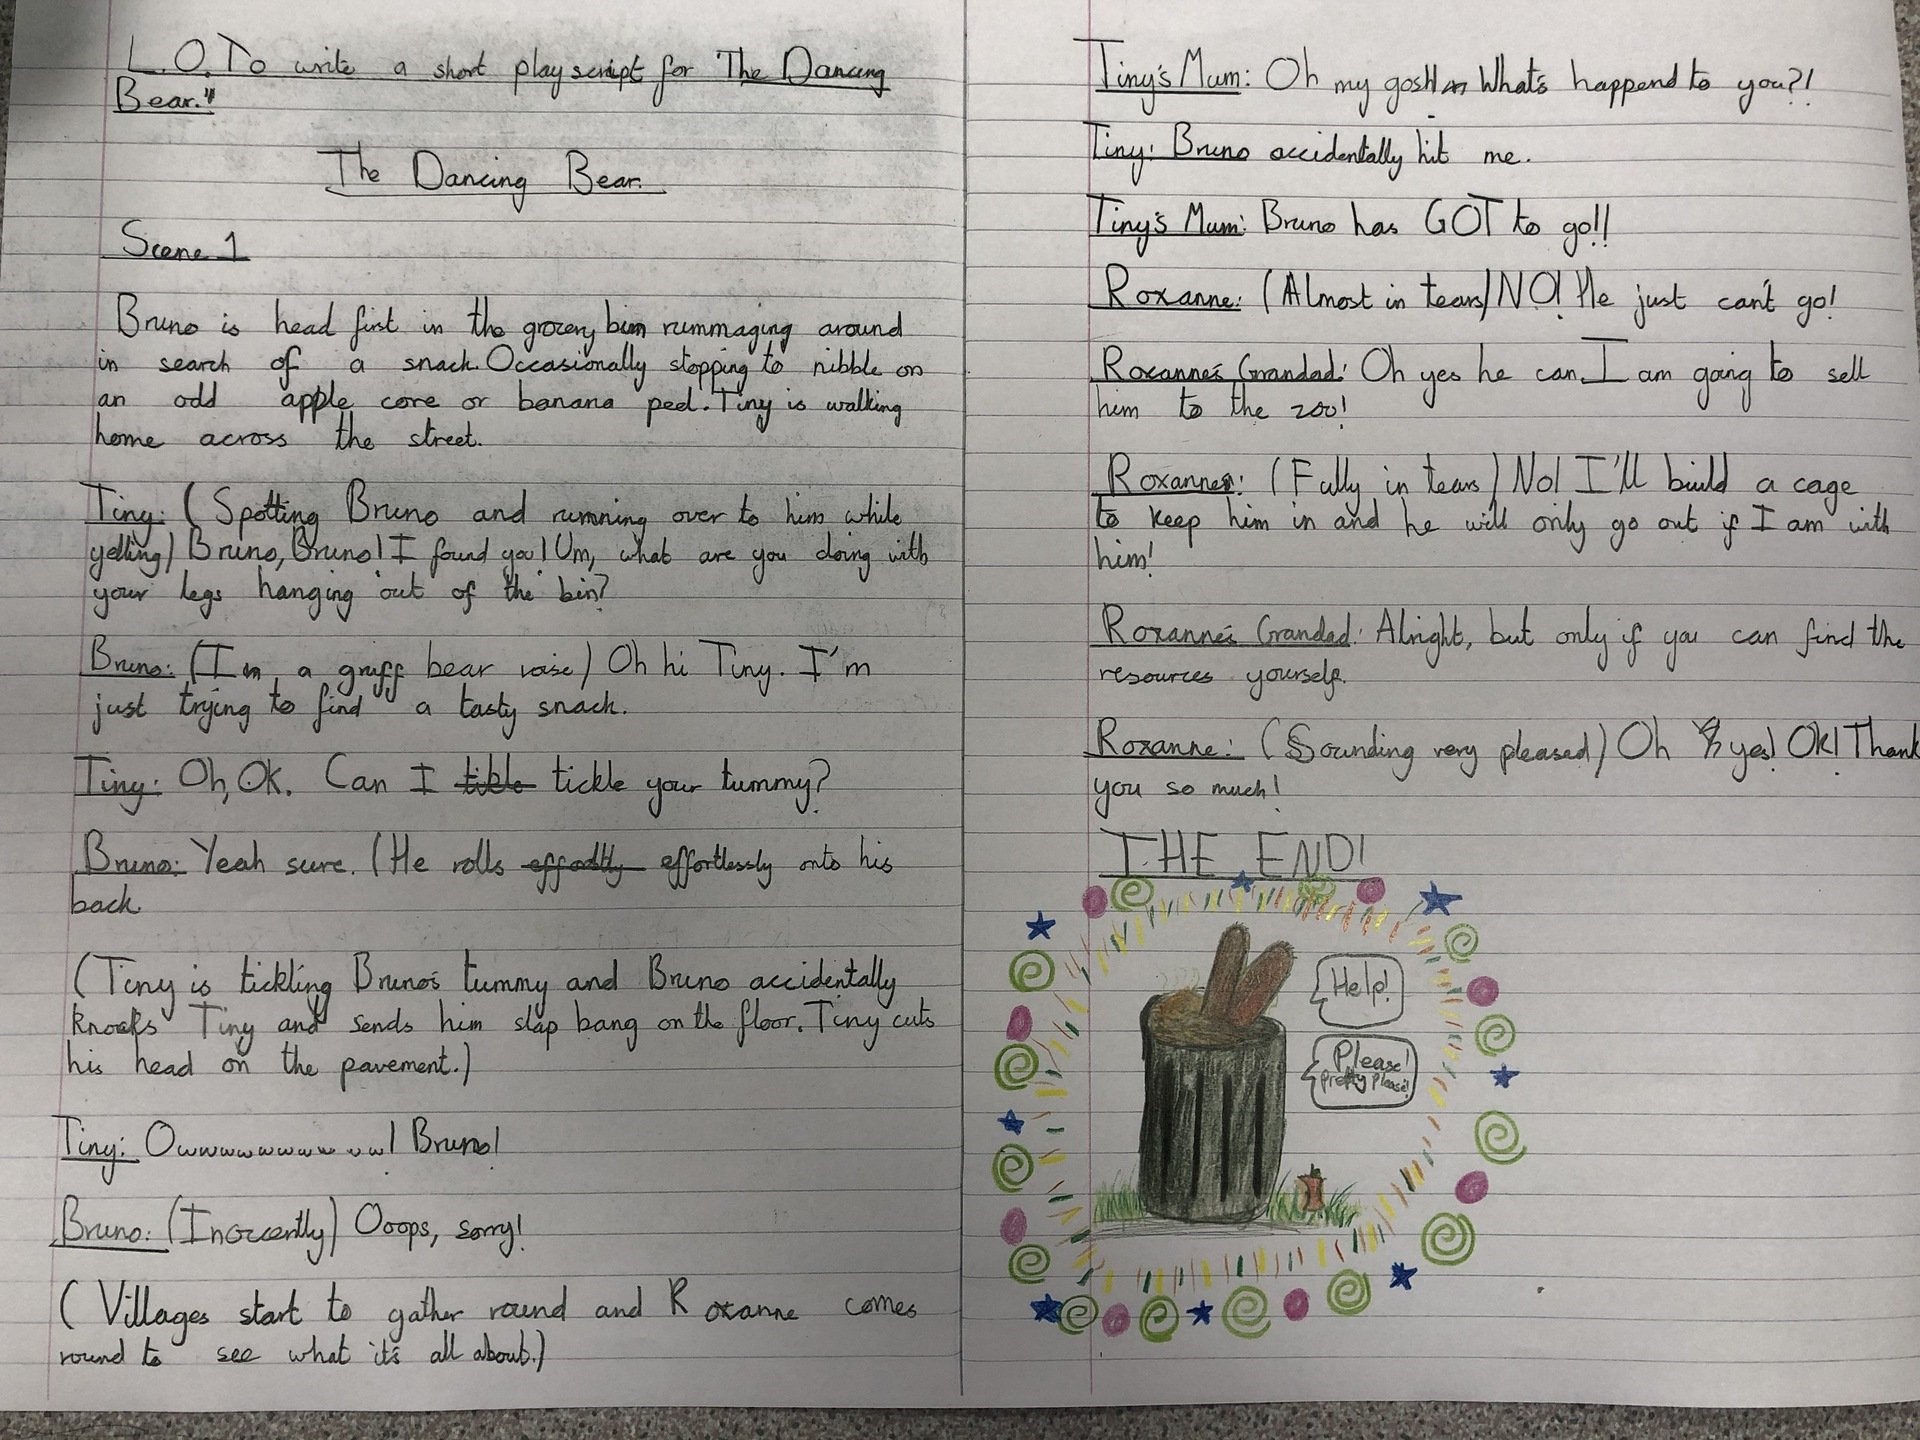 L.O. To write a short play script for "The Dancing
Bear."
The Dancing Bear.
Scene 1
Bruno is head first in the grocery bin rummaging around
in search of a snack. Occasionally stopping to nibble on
an odd apple core or banana peel. Tiny is walking
home across the street.
Tiny: (Spotting Bruno and running over to him while
yelling) Bruno, Bruno! I found you! Um, what are you doing with
your legs hanging out of the bin?
Bruno: (In a gruff bear voise) Oh hi Tiny. I'm
just trying to find a tasty snack.
Tiny: Oh, OK. Can I tickle your tummy?
Bruno: Yeah sure. (He rolls effortlessly onto his
back.
(Tiny is tickling Bruno's tummy and Bruno accidentally
knocks Tiny and sends him slap bang on the floor. Tiny cuts
his head on the pavement.)
Tiny: Owwwwwwwwwww! Bruno!
Bruno: (Inocently) Ooops, sorry!
(Villages start to gather round and Roxanne comes
round to see what it's all about.)
Tiny's Mum: Oh my gosh What's happend to you?!
Tiny: Bruno accidentally hit me.
Tiny's Mum: Bruno has GOT to go!!
Roxanne: (Almost in tears) NO! He just can't go!
Roxanne's Grandad: Oh yes he can. I am going to sell
him to the zoo!
Roxanne: (Fully in tears) No! I'll build a cage
to keep him in and he will only go out if I am with
him!
Roxanne's Grandad: Alright, but only if you can find the
resources yourself.
Roxanne: (Sounding very pleased) Oh yes! Ok! Thank
you so much!
THE END!
Help!
Please!
pretty please!